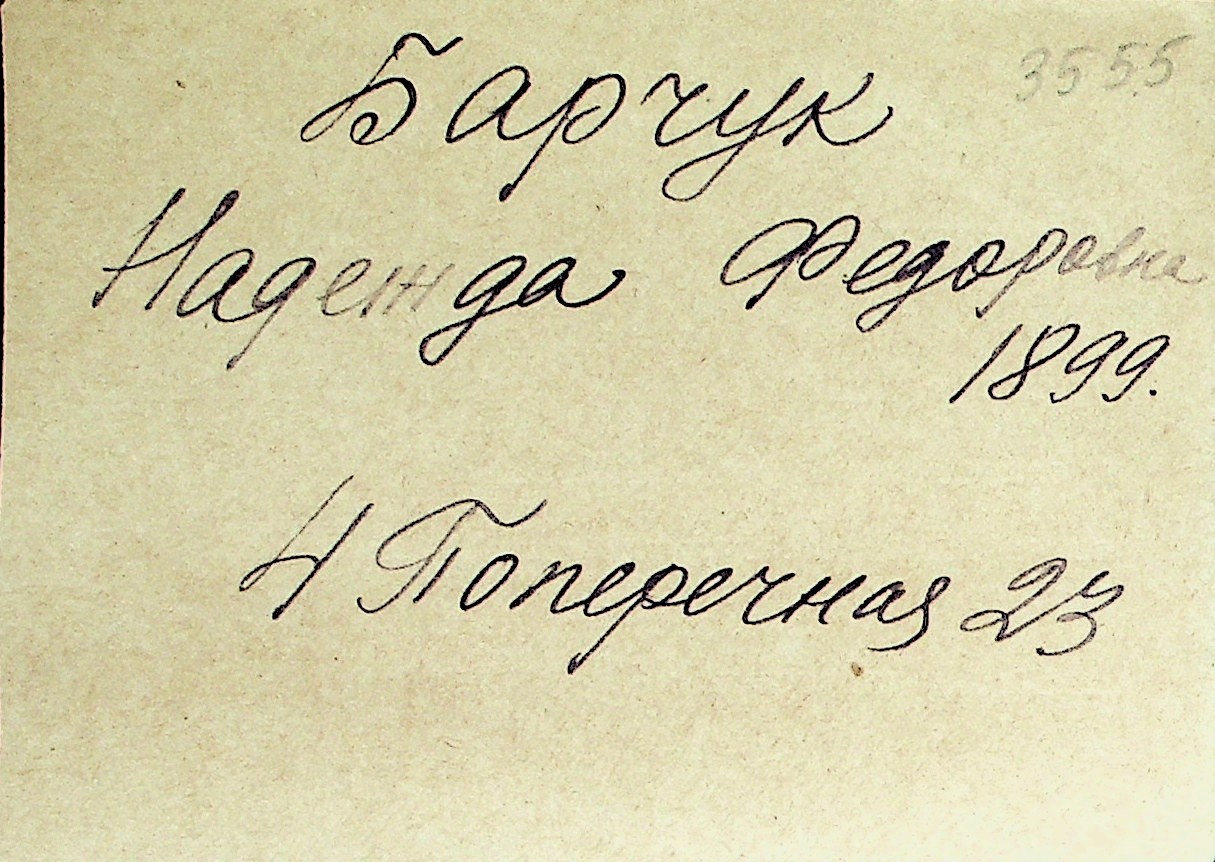 3555
Барчук
Надежда Федоровна
1899.
4 Поперечная 23